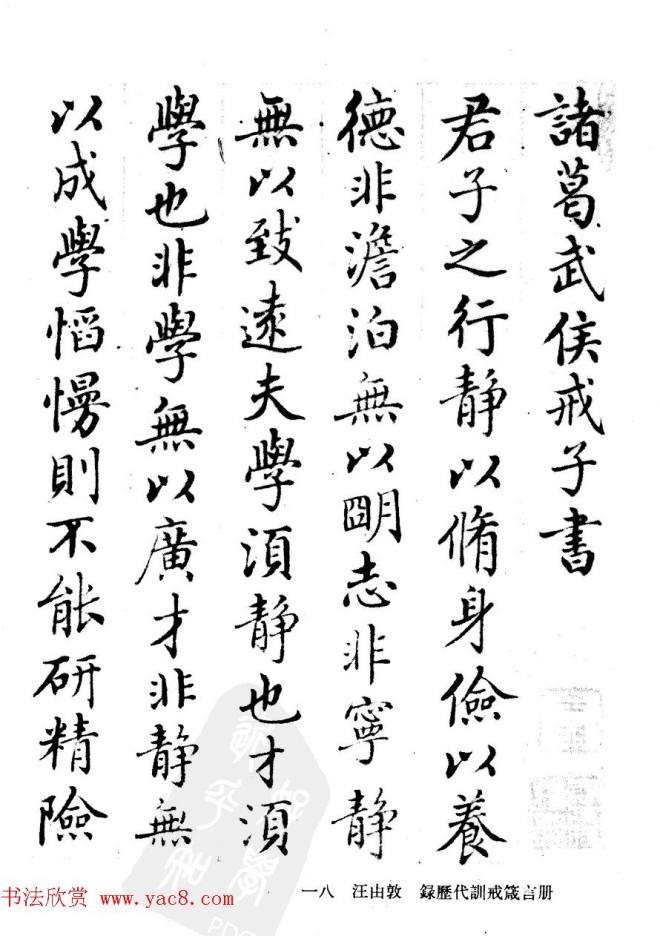 諸葛武侯戒子書
君子之行静以脩身儉以養
德非澹泊無以朙志非寧静
無以致遠夫學須静也才須
學也非學無以廣才非静無
以成學慆慢則不能研精險
册言箴戒訓代歷録　敦由汪　八一
书法欣赏 www.yac8.com